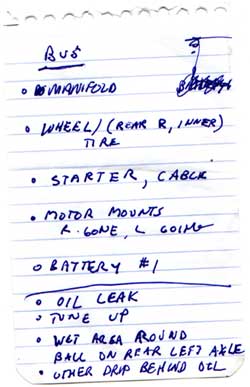 BUS
• MANIFOLD
• WHEEL/(REAR R, INNER)
TIRE
• STARTER, CABLE
• MOTOR MOUNTS
R. GONE, L GOING
• BATTERY #1
• OIL LEAK
• TUNE UP
• WET AREA AROUND
BALL ON REAR LEFT AXLE
• OTHER DRIP BEHIND OIL